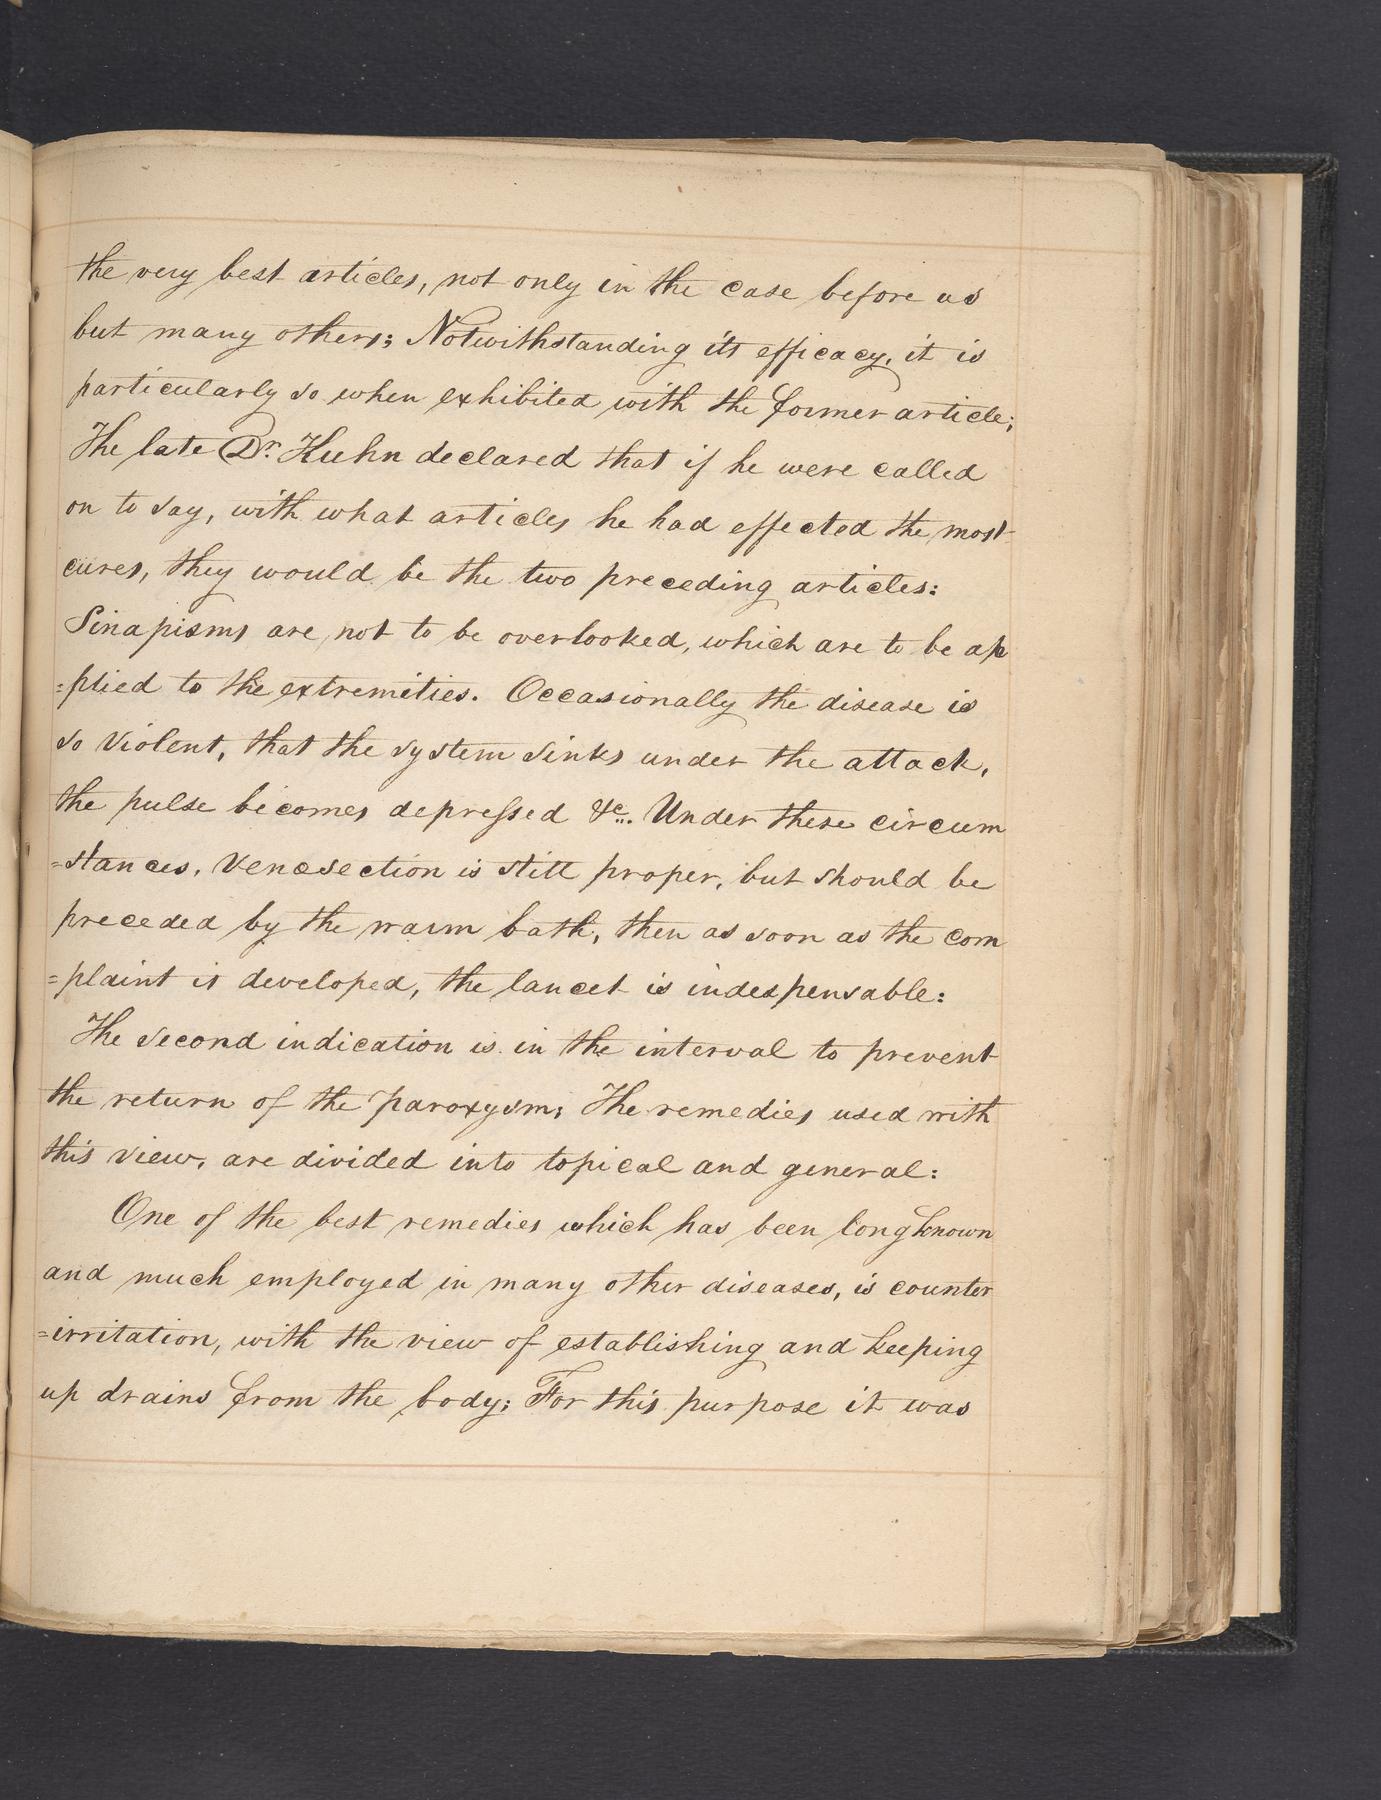 the very best articles, not only in the case before us
but many others; Notwithstanding its efficacy, it is
particularly so when exhibited with the former article;
The late Dr. Kuhn declared that if he were called
on to say, with what articles he had effected the most
cures, they would be the two preceding articles:
Sinapisms are not to be overlooked, which are to be ap
=plied to the extremities. Occasionally the disease is
so violent, that the system sinks under the attack,
the pulse becomes depressed &c. Under these circum
=stances, venesection is still proper, but should be
preceded by the warm bath, then as soon as the com
=plaint is developed, the lancet is indespensable:
The second indication is in the interval to prevent
the return of the paroxysm; The remedies used with
this view, are divided into topical and general:
One of the best remedies which has been long known
and much employed in many other diseases, is counter
=irritation, with the view of establishing and keeping
up drains from the body; For this purpose it was